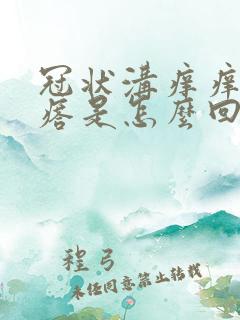 冠状溝痒痒
痞是怎麼回
程弓
未经同意禁止转载